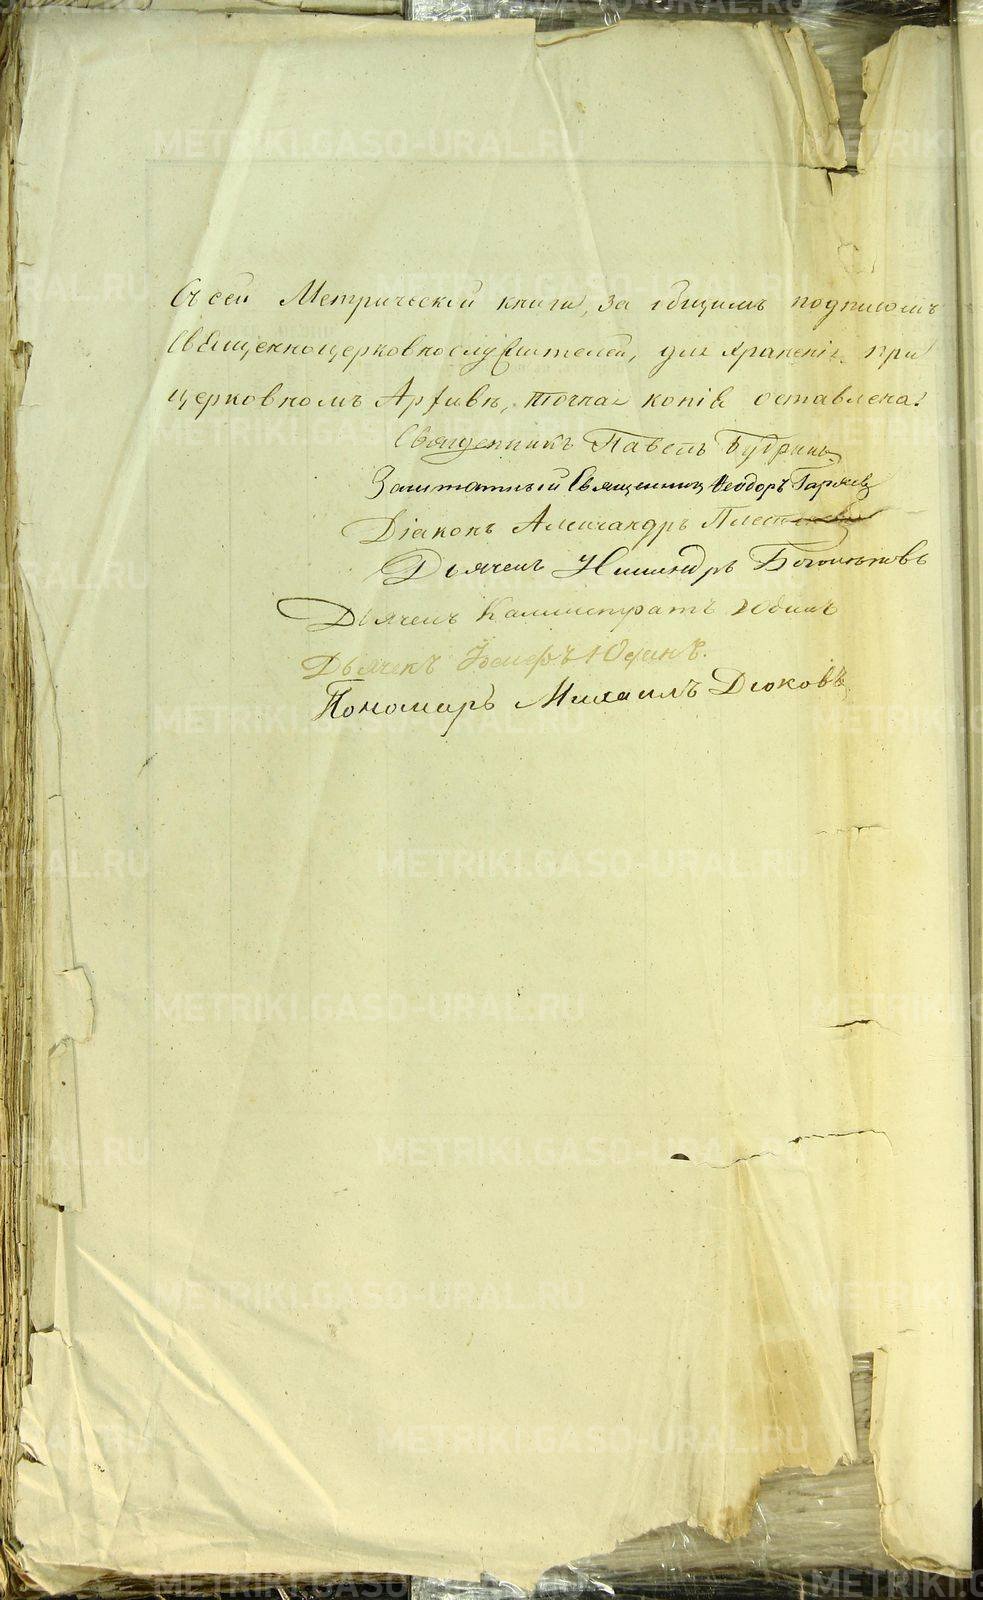 Съ сей Метрической книги, за общимъ подписомъ
Священноцерковнослужителей, для храненія при
церковномъ Архивѣ, точная копія оставлена.
Священникъ Павелъ Будринъ
Заштатный Священникъ Ѳеодоръ Гаряев
Діаконъ Александръ
Дьячекъ Никандръ
Дьячекъ Каллистратъ Юдинъ
Дьячекъ Іосифъ Юдинъ.
Пономарь Михаилъ Дюковъ
METRIKI.GASO-URAL.RU